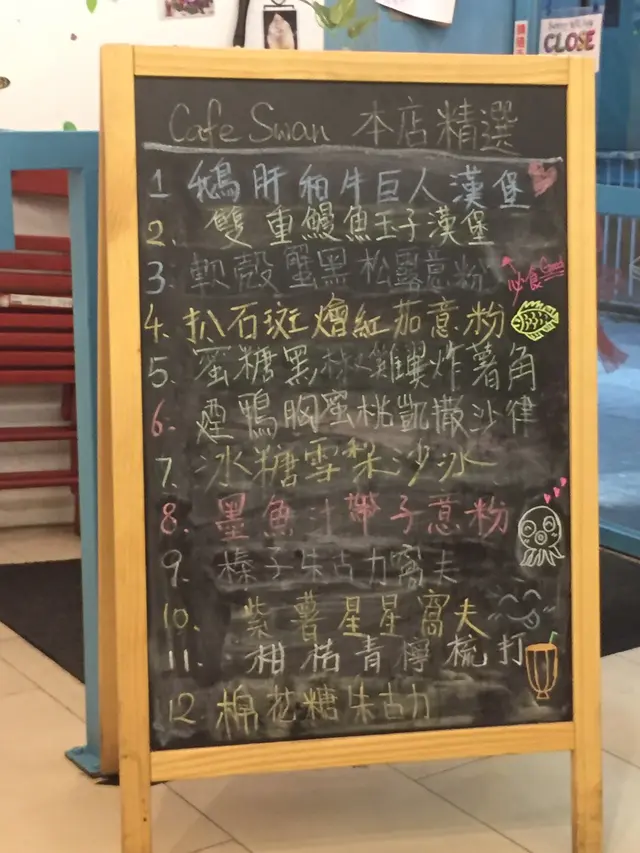 CLOSE
Cafe Swan 本店精選
1 鵝肝和牛巨人漢堡
2. 雙重鰻魚玉子漢堡
3. 軟殼蟹黑松露意粉 必食 Good
4. 扒石斑燴紅茄意粉
5. 蜜糖黑椒雞翼炸薯角
6. 煙鴨胸蜜桃凱撒沙律
7. 冰糖雪梨沙冰
8. 墨魚汁帶子意粉
9. 榛子朱古力窩夫
10. 紫薯星星窩夫
11. 柑桔青檸梳打
12. 棉花糖朱古力